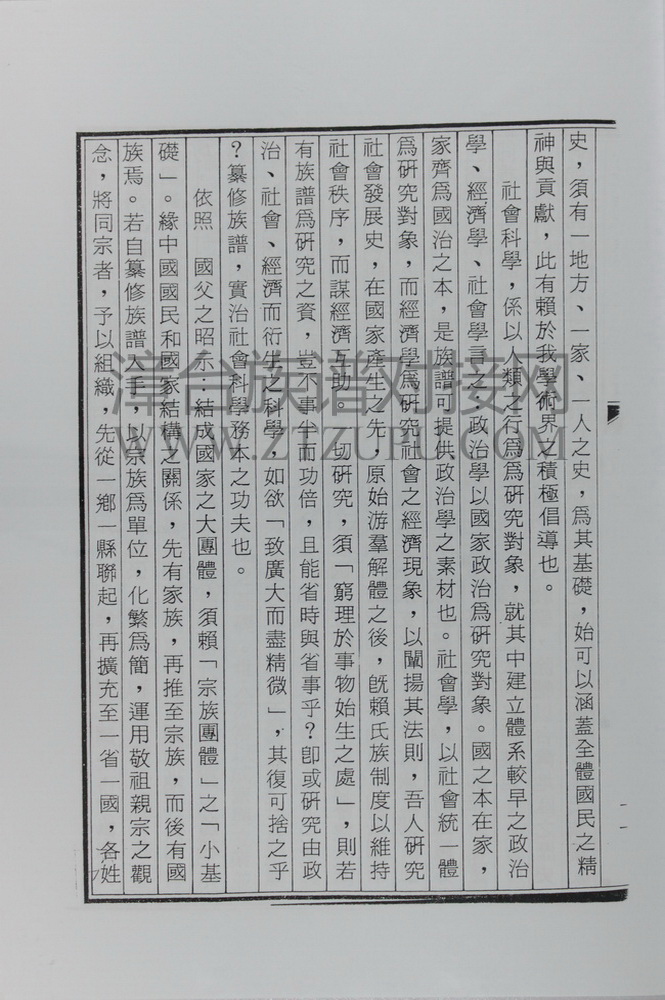 史，須有一地方、一家、一人之史，爲其基礎，始可以涵蓋全體國民之精
神與貢獻，此有賴於我學術界之積極倡導也。
社會科學，係以人類之行爲爲研究對象，就其中建立體系較早之政治
學、經濟學、社會學言之，政治學以國家政治爲研究對象。國之本在家，
家齊爲國治之本，是族譜可提供政治學之素材也。社會學，以社會統一體
爲研究對象，而經濟學爲研究社會之經濟現象，以闡揚其法則，吾人研究
社會發展史，在國家產生之先，原始游羣解體之後，旣賴氏族制度以維持
社會秩序，而謀經濟互助。一切研究，須「窮理於事物始生之處」，則若
有族譜爲研究之資，豈不事半而功倍，且能省時與省事乎？卽或研究由政
治、社會、經濟而衍生之科學，如欲「致廣大而盡精微」，其復可捨之乎
？纂修族譜，實治社會科學務本之功夫也。
依照　國父之昭示：結成國家之大團體，須賴「宗族團體」之「小基
礎」。緣中國國民和國家結構之關係，先有家族，再推至宗族，而後有國
族焉。若自纂修族譜入手，以宗族爲單位，化繁爲簡，運用敬祖親宗之觀
念，將同宗者，予以組織，先從一鄉一縣聯起，再擴充至一省一國，各姓
漳台族谱对接网
WWW.ZTZUPU.COM